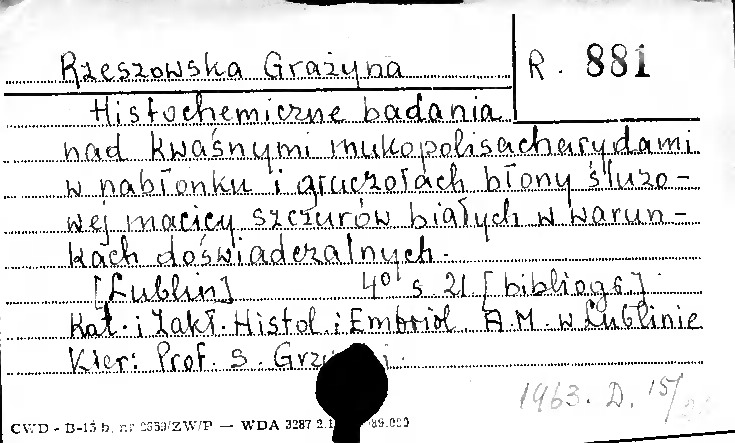 Rzeszowska Grażyna
R. 881
Histochemiczne badania
nad kwaśnymi mukopolisacharydami
w nabłonku i gruczołach błony śluzo-
wej macicy szczurów białych w warun-
kach doświadczalnych.
[Lublin] 4° s 21 [bibliogr.]
Kat. i Zakł. Histol i Embriol A.M. w Lublinie
Kier: Prof. S.
1963. D. 15/
CWD - B-15 b. nr 2659/ZW/P — WDA 3287